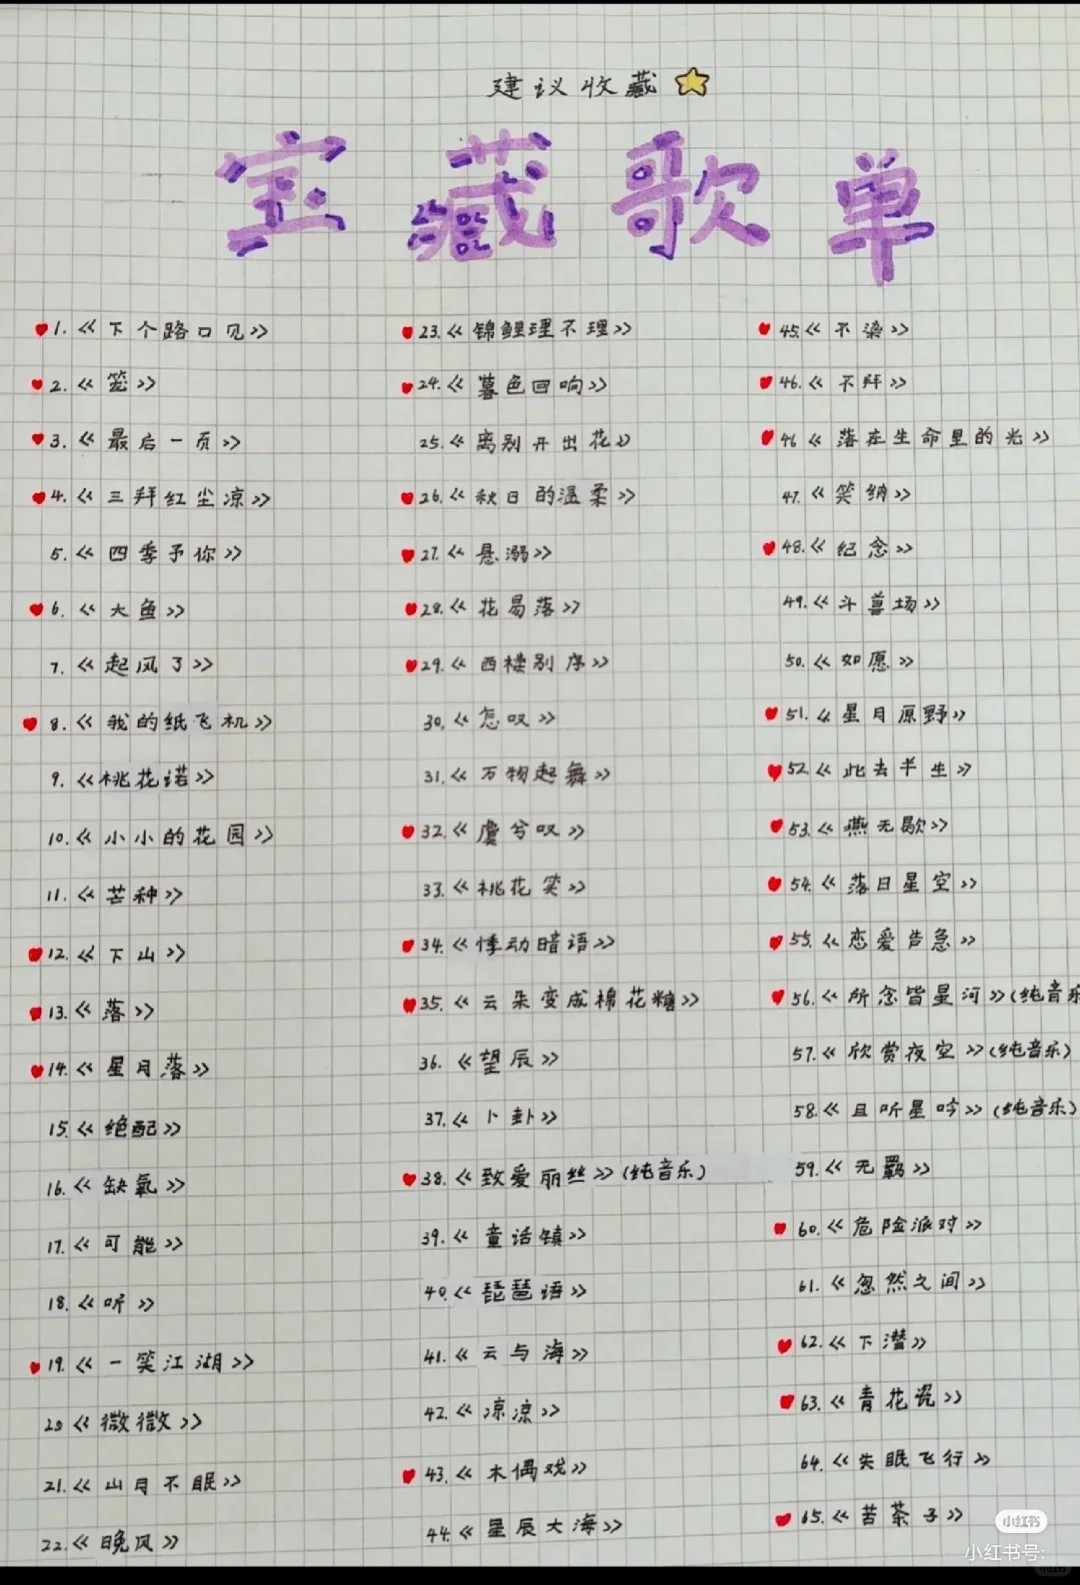 建议收藏
宝藏歌单
1.《下个路口见》
2.《笼》
3.《最后一页》
4.《三拜红尘凉》
5.《四季予你》
6.《大鱼》
7.《起风了》
8.《我的纸飞机》
9.《桃花诺》
10.《小小的花园》
11.《芒种》
12.《下山》
13.《落》
14.《星月落》
15.《绝配》
16.《缺氧》
17.《可能》
18.《听》
19.《一笑江湖》
20《微微》
21.《山月不眠》
22.《晚风》
23.《锦鲤理不理》
24.《暮色回响》
25.《离别开出花》
26.《秋日的温柔》
27.《悬溺》
28.《花易落》
29.《西楼别序》
30.《怎叹》
31.《万物起舞》
32.《虞兮叹》
33.《桃花笑》
34.《悸动暗语》
35.《云朵变成棉花糖》
36.《望辰》
37.《卜卦》
38.《致爱丽丝》(纯音乐)
39.《童话镇》
40.《琵琶语》
41.《云与海》
42.《凉凉》
43.《木偶戏》
44.《星辰大海》
45.《不染》
46.《不拜》
46《落在生命里的光》
47.《笑纳》
48.《纪念》
49.《斗兽场》
50.《如愿》
51.《星月原野》
52《此去半生》
53.《燕无歇》
54.《落日星空》
55.《恋爱告急》
56.《所念皆星河》(纯音乐
57.《欣赏夜空》(纯音乐)
58.《且听星吟》(纯音乐)
59.《无羁》
60.《危险派对》
61.《忽然之间》
62.《下潜》
63.《青花瓷》
64.《失眠飞行》
65.《苦茶子》
小红书
小红书号: